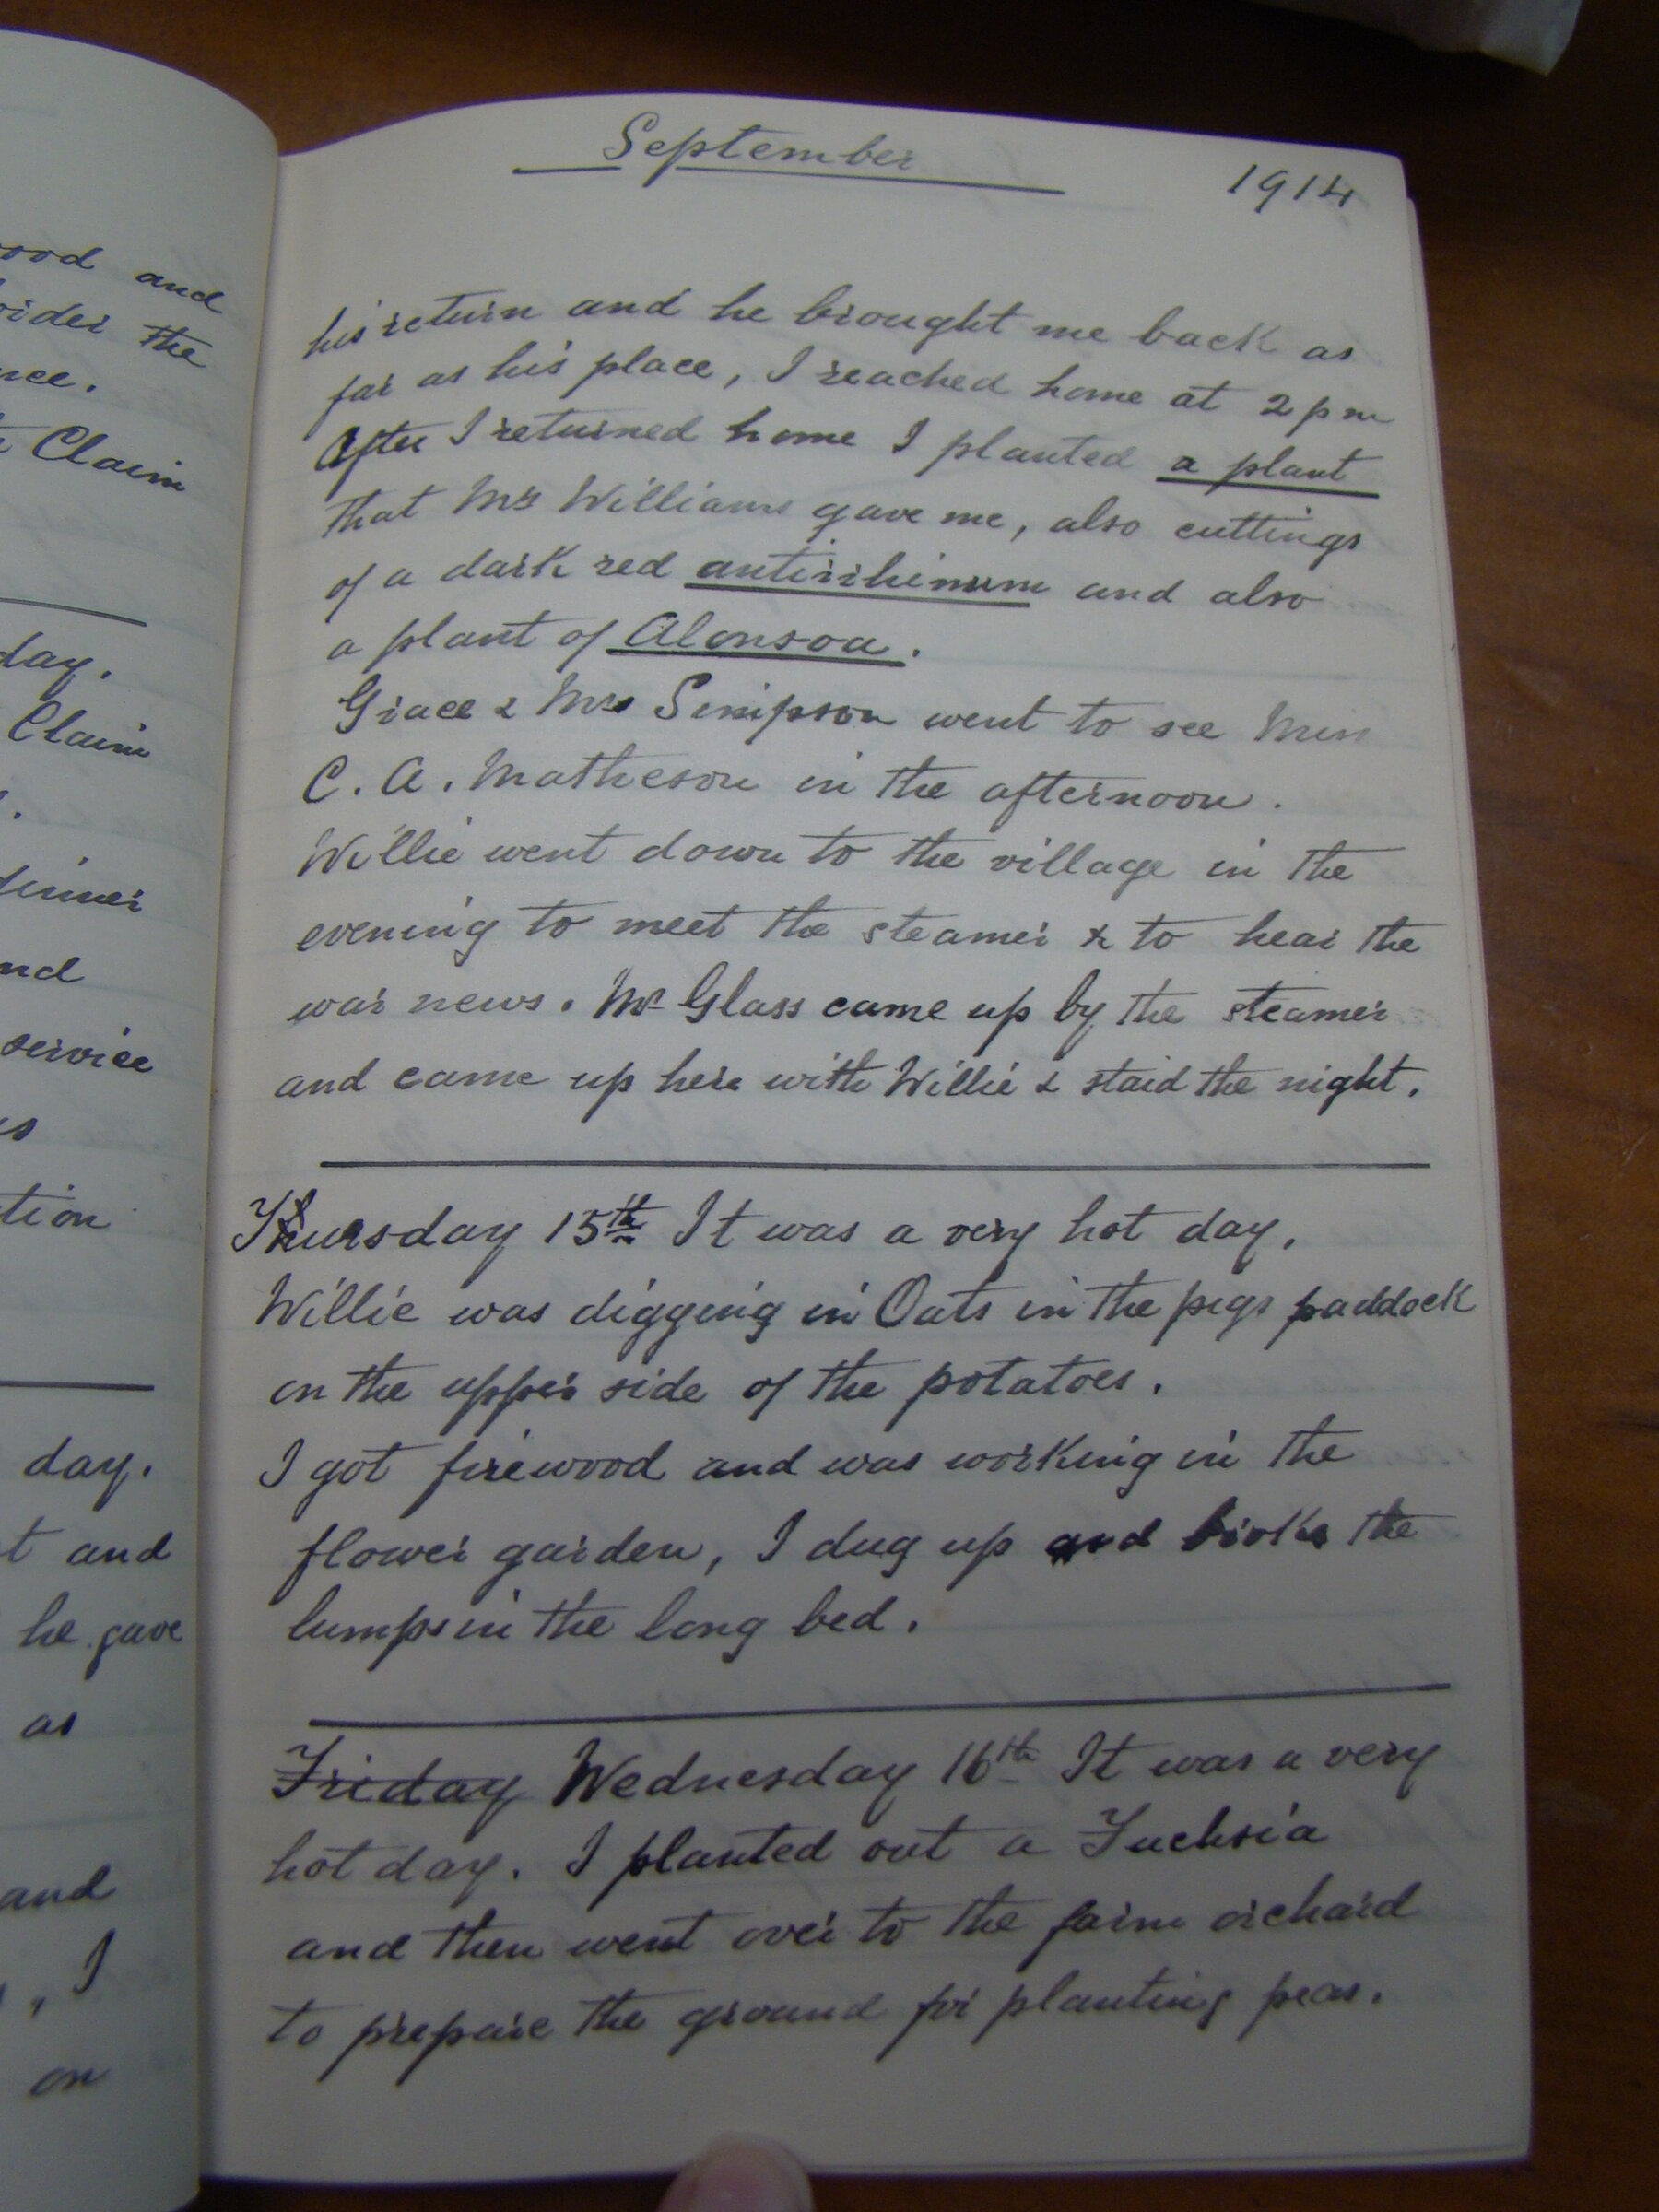 ood and
ider the
nce.
Claim
day.
Claim
dinner
nd
service
s
tion
day.
t and
he gave
as
and
, I
on
September
1914
his return and he brought me back as
far as his place, I reached home at 2 pm
After I returned home I planted a plant
that Mrs Williams gave me, also cuttings
of a dark red antirrhinum and also
a plant of Alonsoa.
Grace & Mrs Simpson went to see Miss
C. A. Matheson in the afternoon.
Willie went down to the village in the
evening to meet the steamer & to hear the
war news. Mr Glass came up by the steamer
and came up here with Willie & staid the night.
Thursday 15th It was a very hot day,
Willie was digging in Oats in the pigs paddock
on the upper side of the potatoes.
I got firewood and was working in the
flower garden, I dug up and broke the
lumps in the long bed.
Friday Wednesday 16th It was a very
hot day. I planted out a Fuchsia
and then went over to the farm orchard
to prepare the ground for planting peas.